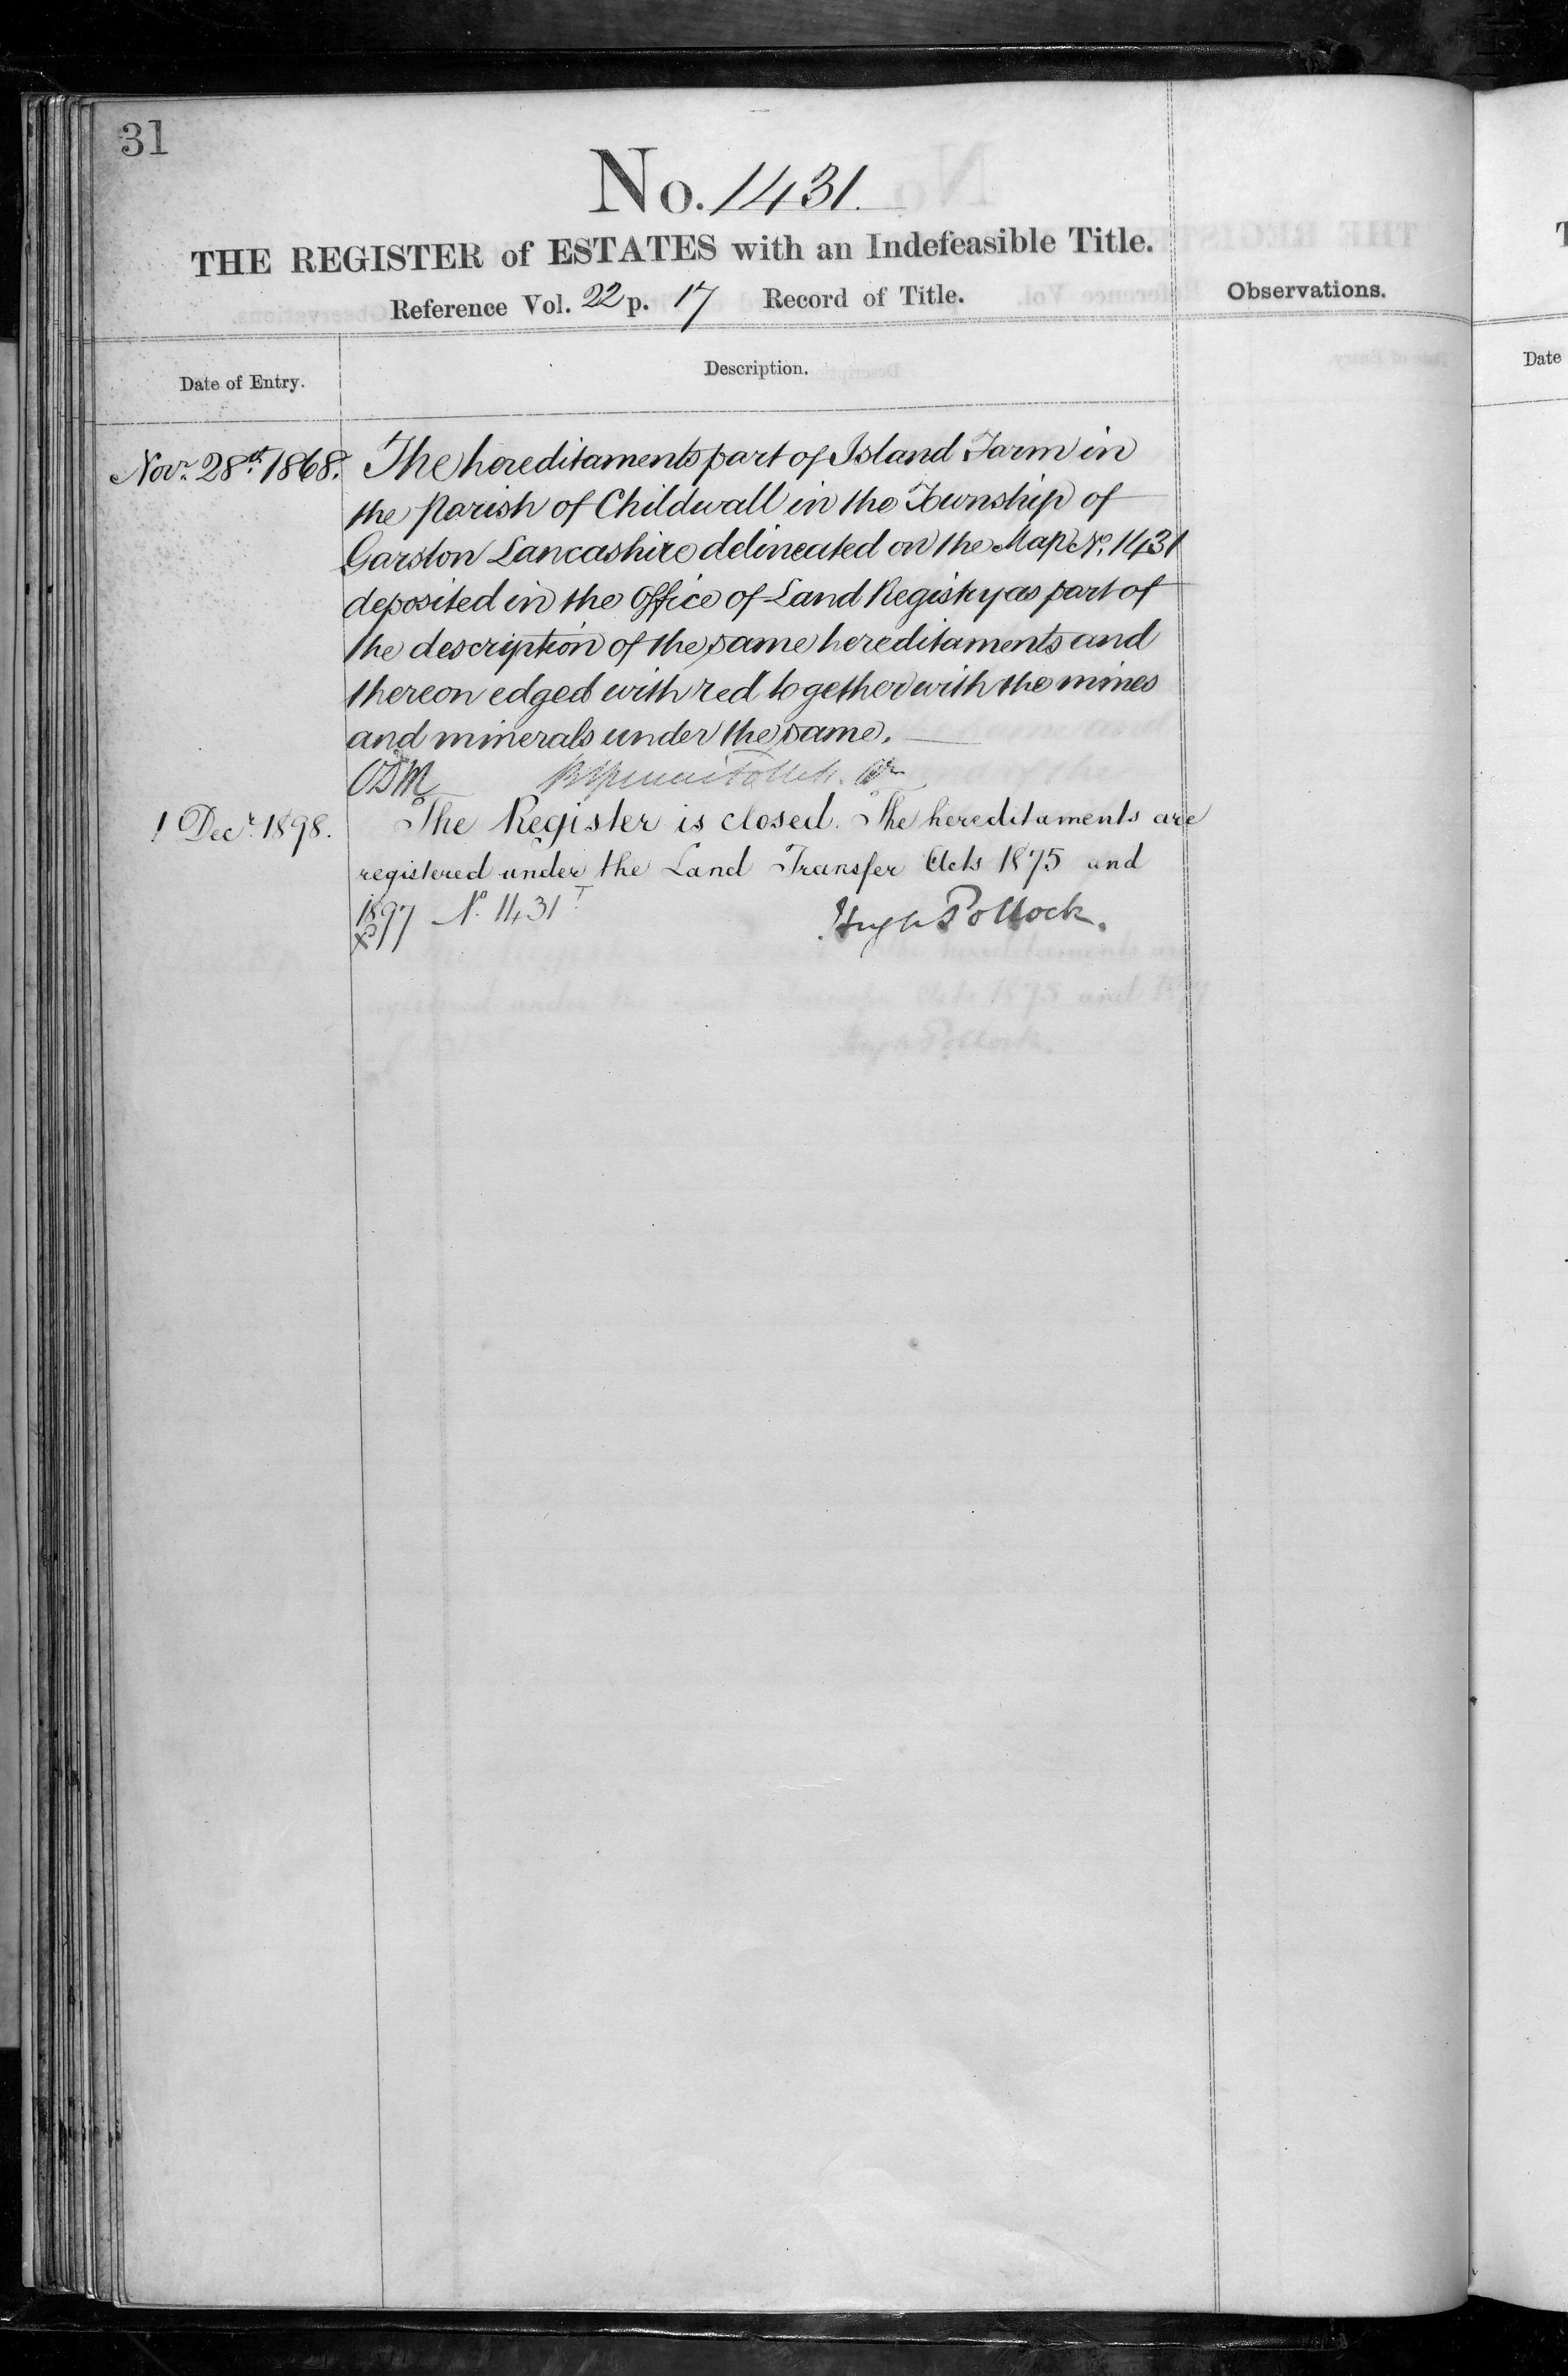 31
No. 1431.
THE REGISTER of ESTATES with an Indefeasible Title.
Reference Vol. 22 p. 17 Record of Title.
Observations.
Date of Entry.
Description.
Date
Novr. 28th. 1868. The hereditaments part of Island Farm in
the parish of Childwall in the Township of
Garston Lancashire delineated on the Map No. 1431
deposited in the Office of Land Registry as part of
the description of the same hereditaments and
thereon edged with red together with the mines
and minerals under the same.
1 Decr. 1898. The Register is closed. The hereditaments are
registered under the Land Transfer Acts 1875 and
1897 No. 1431T
Hugh Pollock.